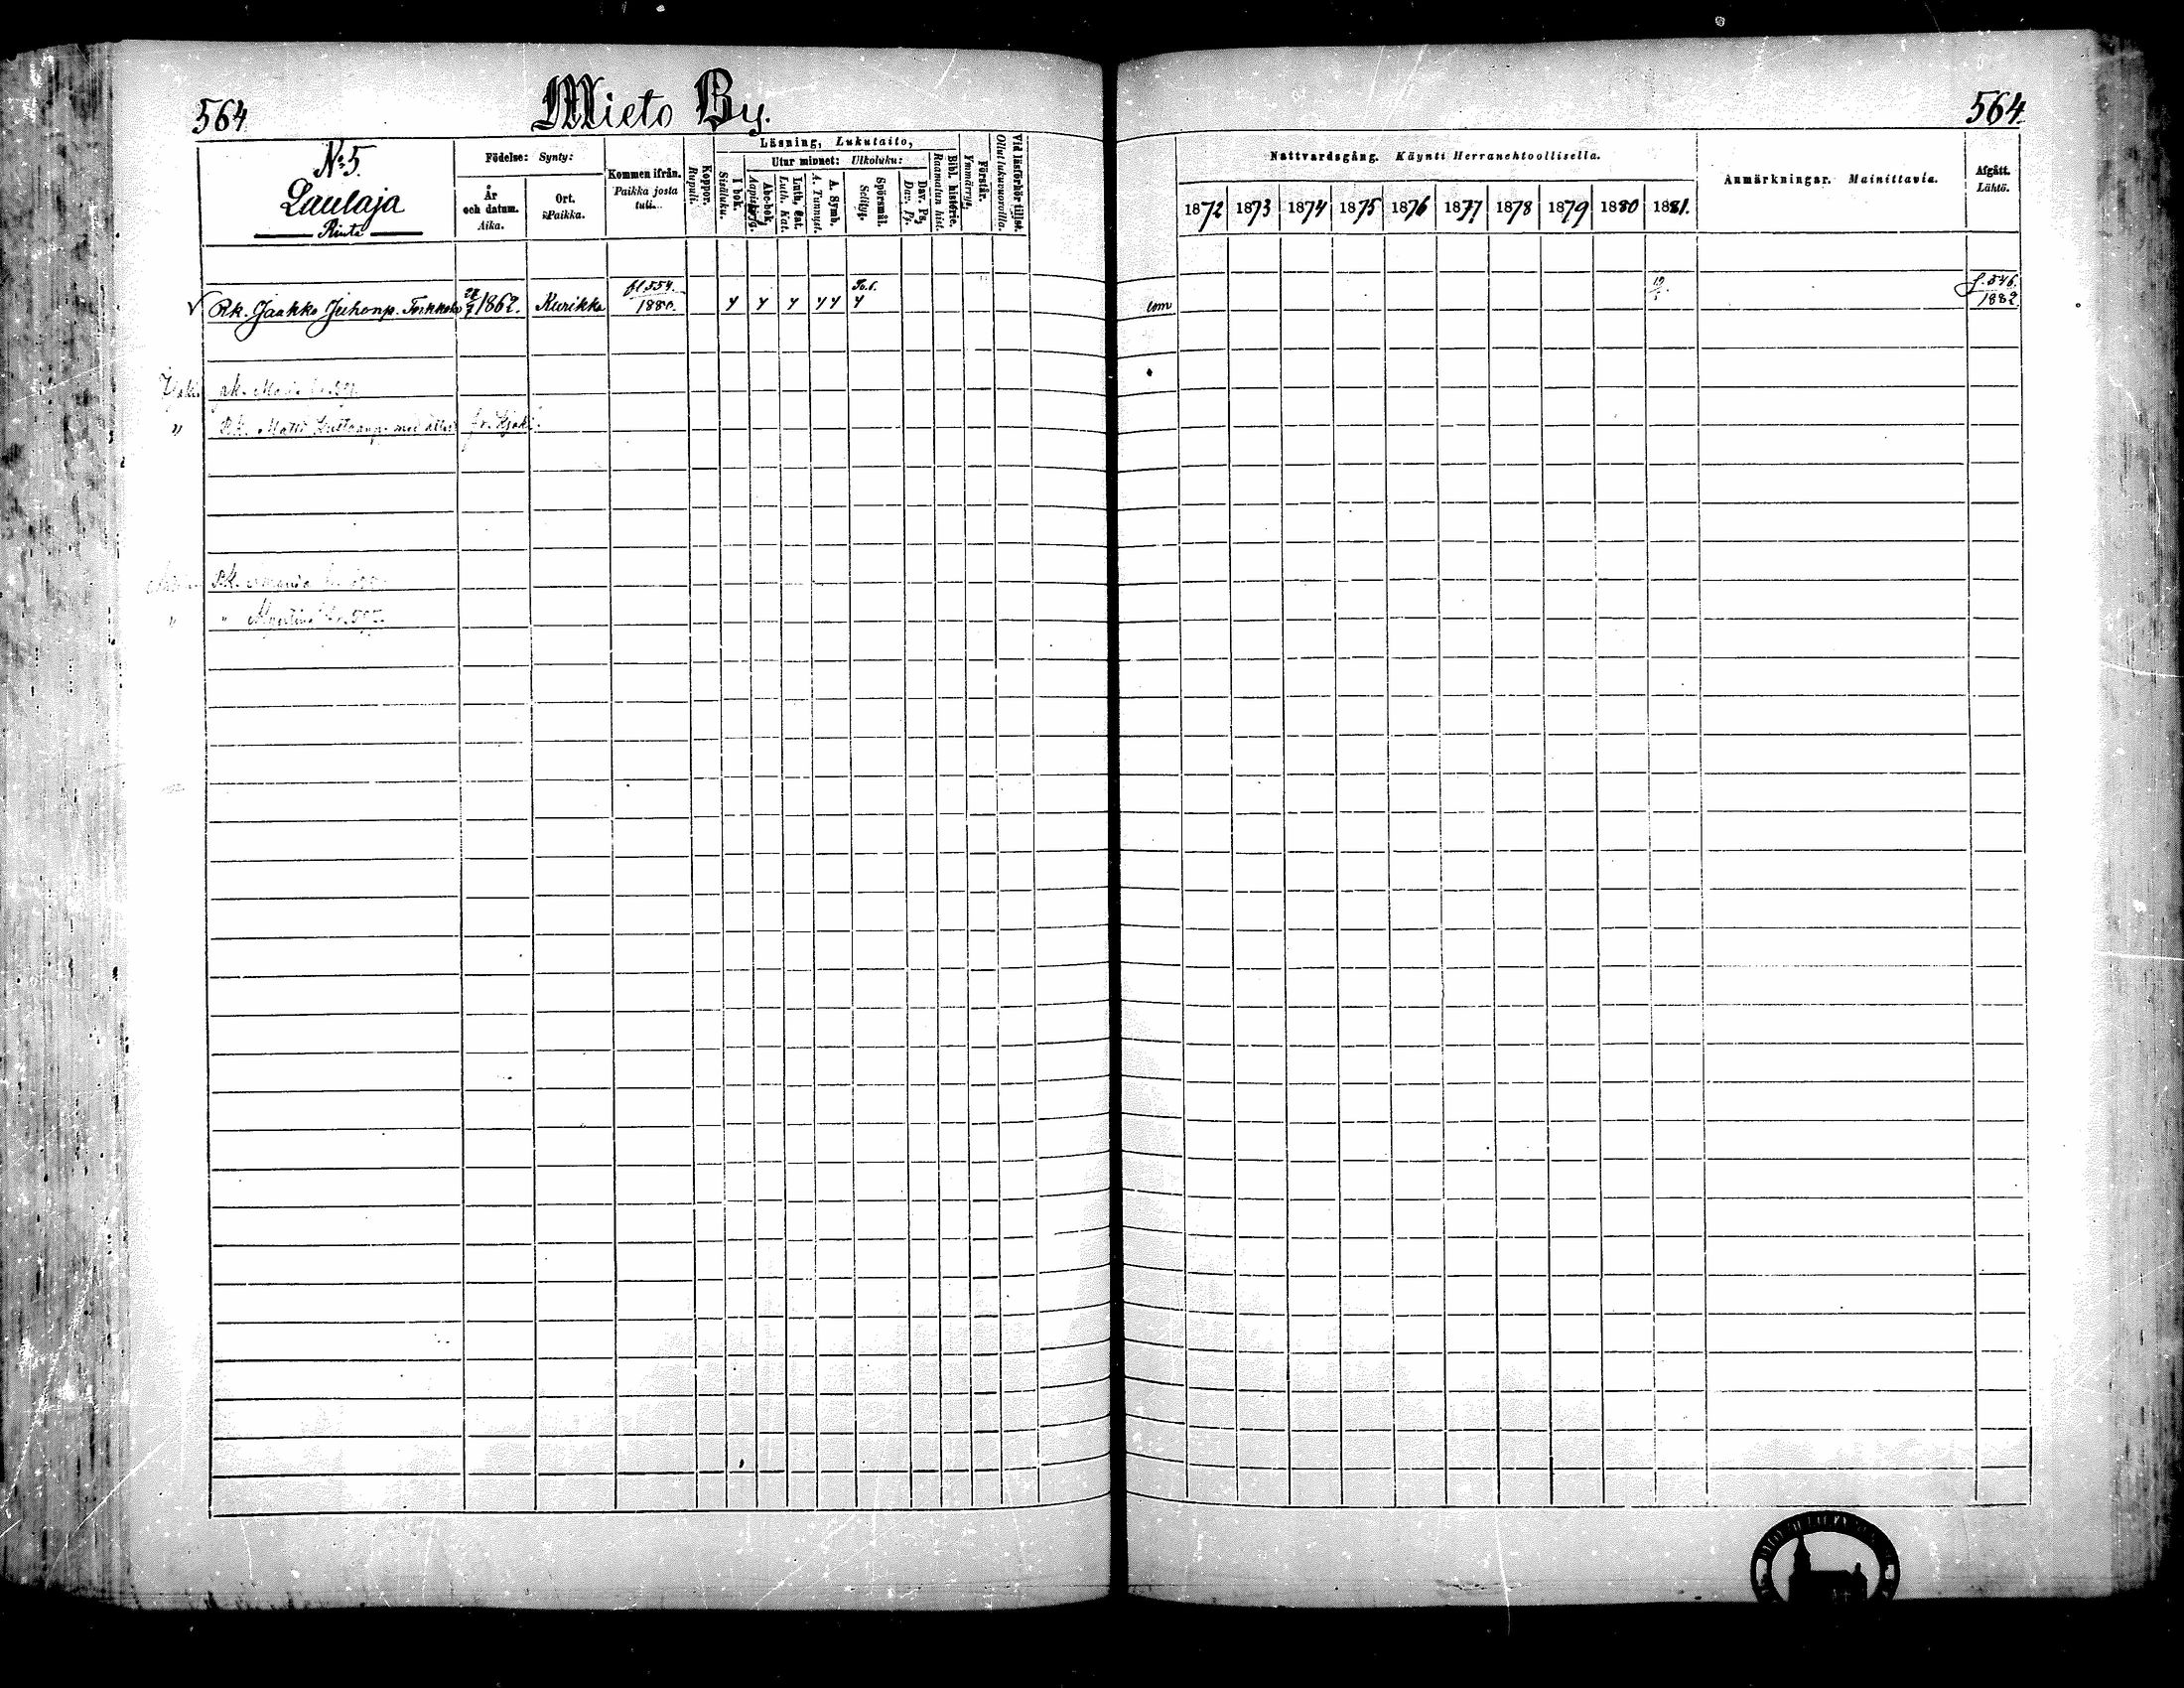 564
Mieto By.
564.
No 5.
Laulaja
Rinta
Födelse: Synty:
År och datum. Aika.
Ort. Paikka.
Kommen ifrån. Paikka josta tuli.
Koppor. Rupuli.
Läsning, Lukutaito,
I bok. Sisäluku.
Utur minnet: Ulkoluku:
Abc-bok. Aapiskirja.
Luth. Cat. Luth. Kat.
A. Symb. A. Tunnust.
Spörsmål. Selitys.
Dav. Ps. Dav. Ps.
Bibl. historie. Raamatun hist.
Förstår. Ymmärrys.
Vid läsförhör tillst. Ollut lukuvuoroilla.
Nattvardsgång. Käynti Herranehtoollisella.
1872 1873 1874 1875 1876 1877 1878 1879 1880 1881.
Anmärkningar. Mainittavia.
Afgått. Lähtö.
fl 554. f. 546.
Rk. Jaakko Juhonp. 1862. Kurikka 1880. 1882
pk. Maria
Rk. Matti fr.
Rk.